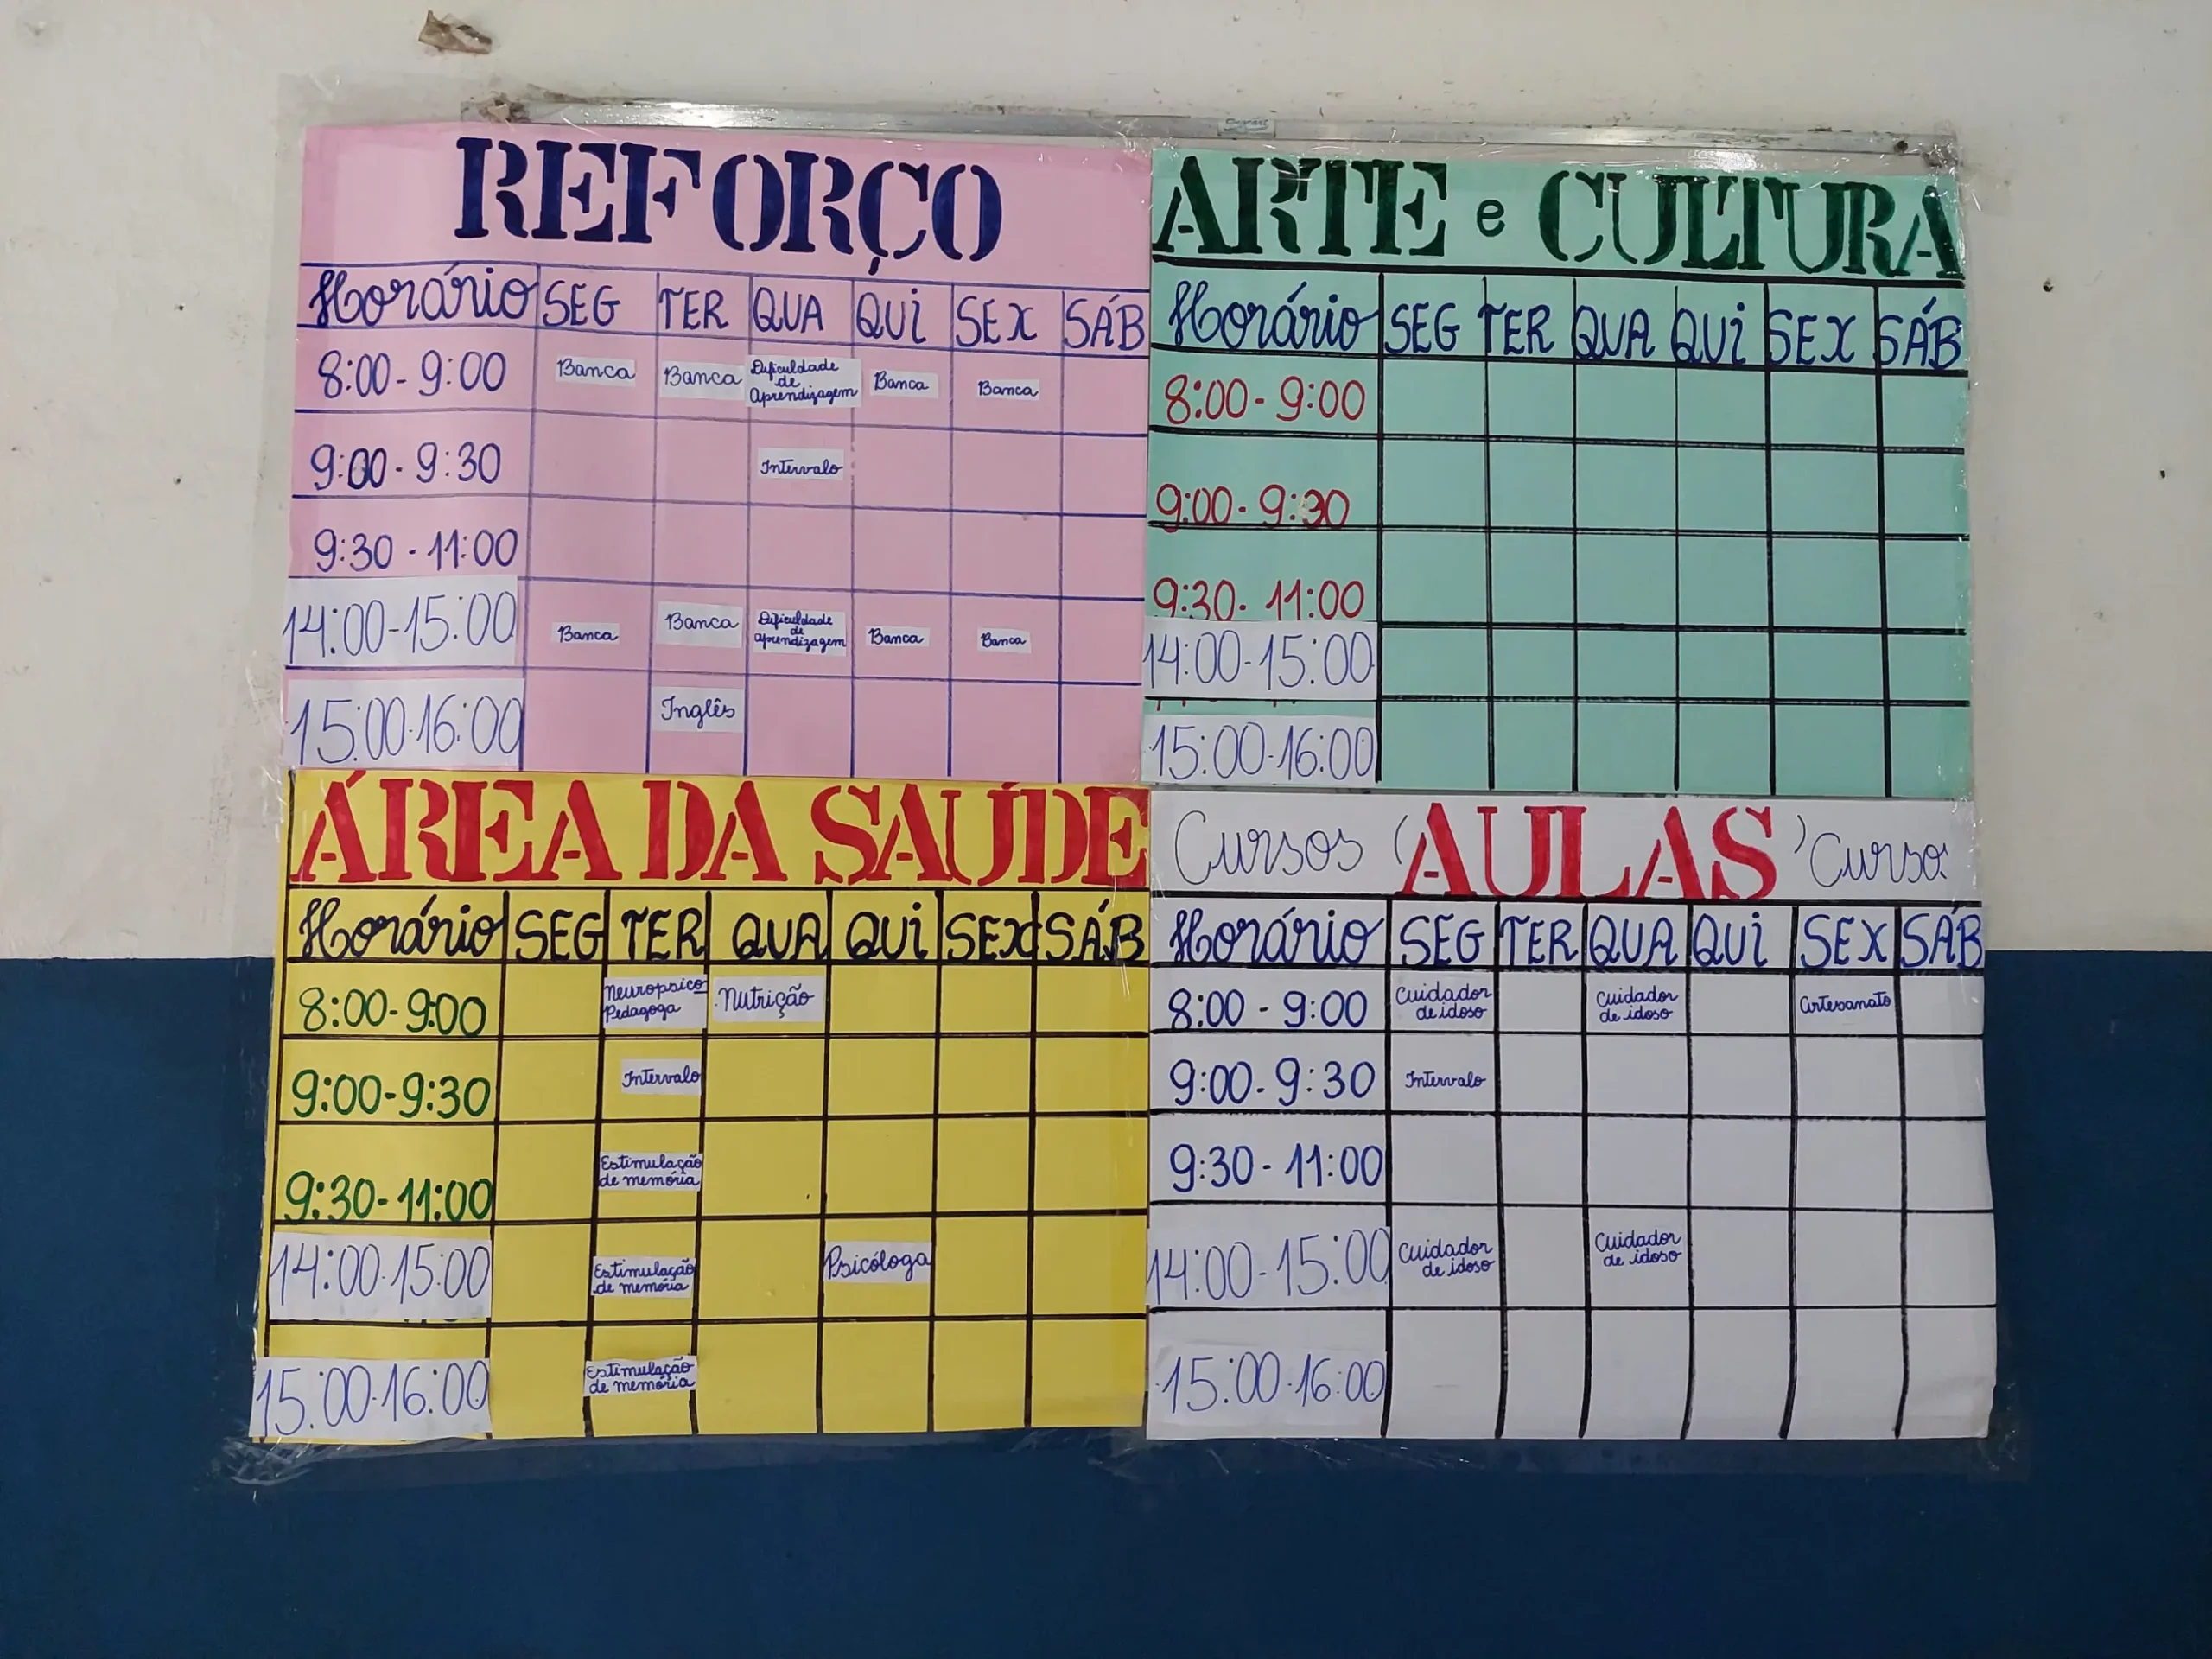 REFORÇO
Horário SEG TER QUA QUI SEX SÁB
8:00-9:00 Banca Banca Dificuldade de Aprendizagem Banca Banca
9:00-9:30 Intervalo
9:30-11:00
14:00-15:00 Banca Banca Dificuldade de aprendizagem Banca Banca
15:00-16:00 Inglês
ARTE e CULTURA
Horário SEG TER QUA QUI SEX SÁB
8:00-9:00
9:00-9:30
9:30-11:00
14:00-15:00
15:00-16:00
ÁREA DA SAÚDE
Horário SEG TER QUA QUI SEX SÁB
8:00-9:00 Neuropsico Pedagoga Nutrição
9:00-9:30 Intervalo
9:30-11:00 Estimulação de memória
14:00-15:00 Estimulação de memória Psicóloga
15:00-16:00 Estimulação de memória
Cursos (AULAS) Curso
Horário SEG TER QUA QUI SEX SÁB
8:00-9:00 Cuidador de idoso Cuidador de idoso Artesanato
9:00-9:30 Intervalo
9:30-11:00
14:00-15:00 Cuidador de idoso Cuidador de idoso
15:00-16:00